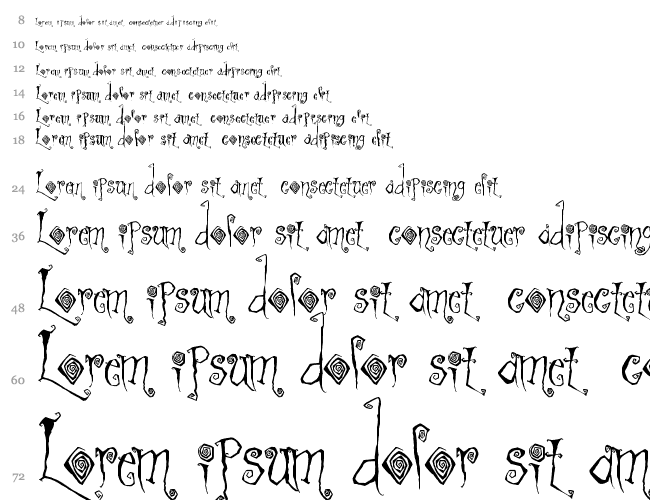 8 Lorem ipsum dolor sit amet consectetuer adipiscing elit
10 Lorem ipsum dolor sit amet consectetuer adipiscing elit
12 Lorem ipsum dolor sit amet consectetuer adipiscing elit
14 Lorem ipsum dolor sit amet consectetuer adipiscing elit
16 Lorem ipsum dolor sit amet consectetuer adipiscing elit
18 Lorem ipsum dolor sit amet consectetuer adipiscing elit
24 Lorem ipsum dolor sit amet consectetuer adipiscing elit
36 Lorem ipsum dolor sit amet consectetuer adipiscing
48 Lorem ipsum dolor sit amet consectetu
60 Lorem ipsum dolor sit amet co
72 Lorem ipsum dolor sit am